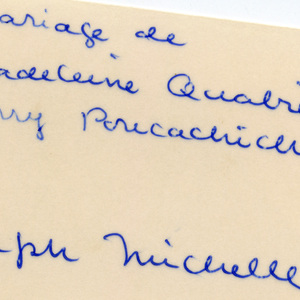 ariage de
adeleine Quatri
rry Porcachich
ph Michelle